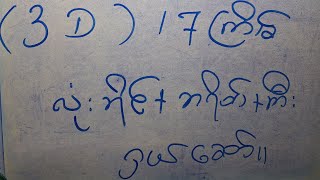 (3D) 17 ကြိမ်
လုံးဘိုင် + ဘရိတ် + ကီး
ဝယ်ဆော်။